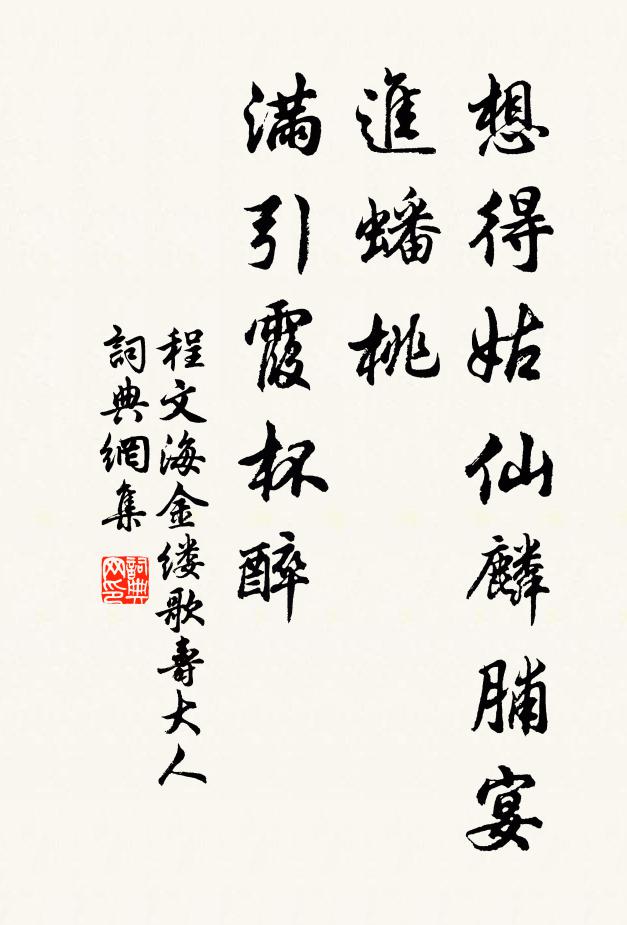 想得姑仙麟脯宴
進蟠桃
滿引霞杯醉
程文海金缕歌壽大人
詞典網集
詞典网印